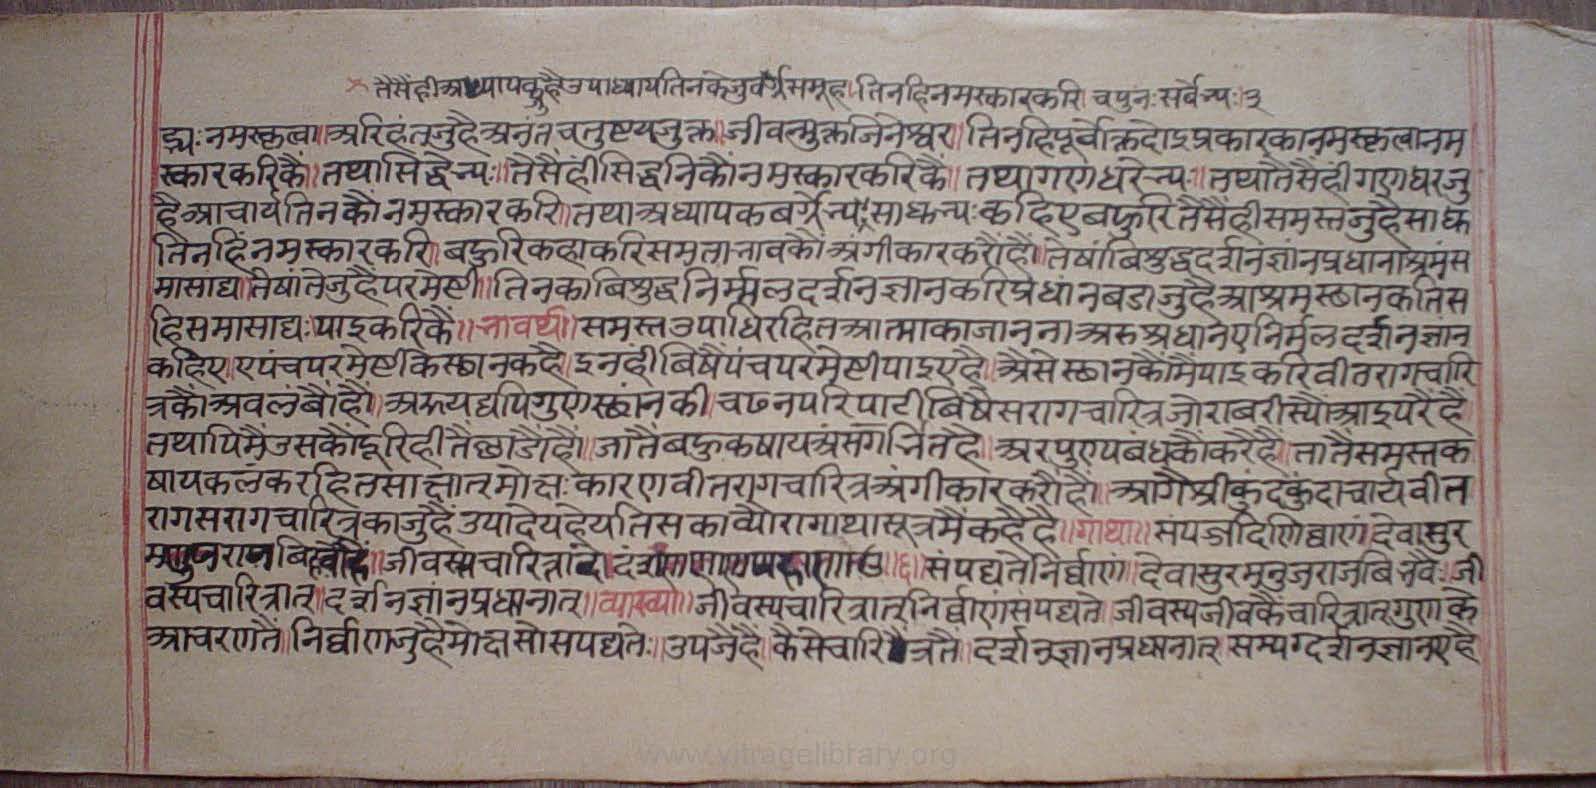 तैसैंही अध्यापक हैं उपाध्याय तिनके जु वर्ग समूह। तिनहि नमस्कारकरि। च पुनः सर्वेभ्यः। ३
द्भ्यः नमस्कृत्वा॥अरिहंत जु है अनंतचतुष्टयजुक्त। जीवन्मुक्तजिनेश्वर। तिनहि पूर्वोक्त दोइ प्रकारका नमस्कृत्वा नम
स्कार करिकैं॥ तथा सिद्धेभ्यः॥ तैसैंही सिद्धनिकौं नमस्कारकरिकैं॥ तथा गणधरेभ्यः॥ तथा तैसैंही गणधर जु
है आचार्य तिनकौं नमस्कारकरि॥ तथा अध्यापकबर्गेभ्यः साधुभ्यः कहिए बहुरि तैसैंही समस्त जु है साध
तिनहिं नमस्कारकरि। बहुरि कहा करि समताभावकौं अंगीकार करौं हौं॥ तेषां बिशुद्धदर्शनज्ञांनप्रधानाश्रमं स
मासाद्य। तेषां ते जु हैं परमेष्टी॥ तिनका बिशुद्ध निर्म्मल दर्शनज्ञानकरि प्रधांन बडा जु है आश्रम स्छानक तिस
हि समासाद्यः पाइकरिकैं॥ भावर्थ॥ समस्त उपाधिरहित आत्माका जानना अरु श्रधान ए निर्मल दर्शनज्ञान
कहिए। ए पंच परमेष्टीके स्छानक है। इनहीं बिषैं पंचपरमेष्टी पाइए है॥ अैसे स्छानककौं मैं पाइकरि वीतरागचारि
त्रकौं अवलंबौं हौं॥ अरु यद्यपि गुणस्छांनकी। चढनपरिपाटी बिषैं सरागचारित्र जोराबरीस्यौं आइ परै है
तथापि मैं उसकौं दूरिहीतैं छाडौं हौं॥ जातैं बहु कषायअंसगर्भित है॥ अर पुण्यबंधकौं करै है॥ तातैं समस्त क
षायकलंकरहित साक्षात् मोक्षःकारण वीतरागचारित्र अंगीकार करौं हौं॥ आगैं श्रीकुंदकुंदाचार्य वीत
राग सराग चारित्रका जु है उपादेय हेय तिसका व्यौरा गाथासूत्रमैं कहै है॥ गाथा॥ संपज्जदि णिव्वाणं। देवासुर
मणुजराज बिहवेहिं॥ जीवस्स चारित्तादो। दंसण णाणपहाणादो॥६॥ संपद्यते निर्व्वाणं॥ देवासुरमनुजराजबिभवैः जी
वस्य चारित्रात्। दर्शनज्ञांनप्रधानात्॥ व्याख्या॥ जीवस्य चारित्रात् निर्व्वाणं संपद्यते। जीवस्य जीवकै चारित्रात् गुणके
आचरणतैं॥ निर्व्वाण जु है मोक्ष सो सपद्यतेः॥ उपजै है॥ कैसे चारित्रतैं॥ दर्शनज्ञानप्रधानात्॥ सम्यग्दर्शनज्ञान ए है
www.vitragelibrary.org